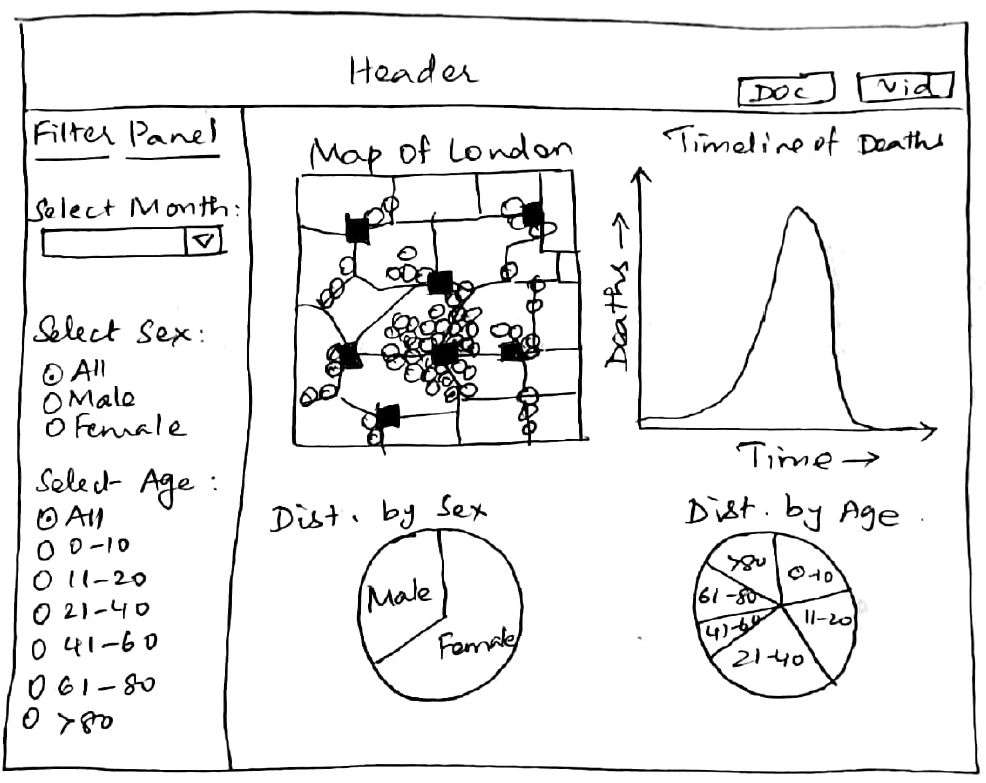 Header
DOC
Vid
Filter Panel
Select Month:
Select Sex:
All
Male
Female
Select Age :
All
0-10
11-20
21-40
41-60
61-80
>80
Map Of London
Timeline of Deaths
Deaths →
Time →
Dist. by Sex
Male
Female
Dist. by Age
>80
0-10
61-80
11-20
41-60
21-40